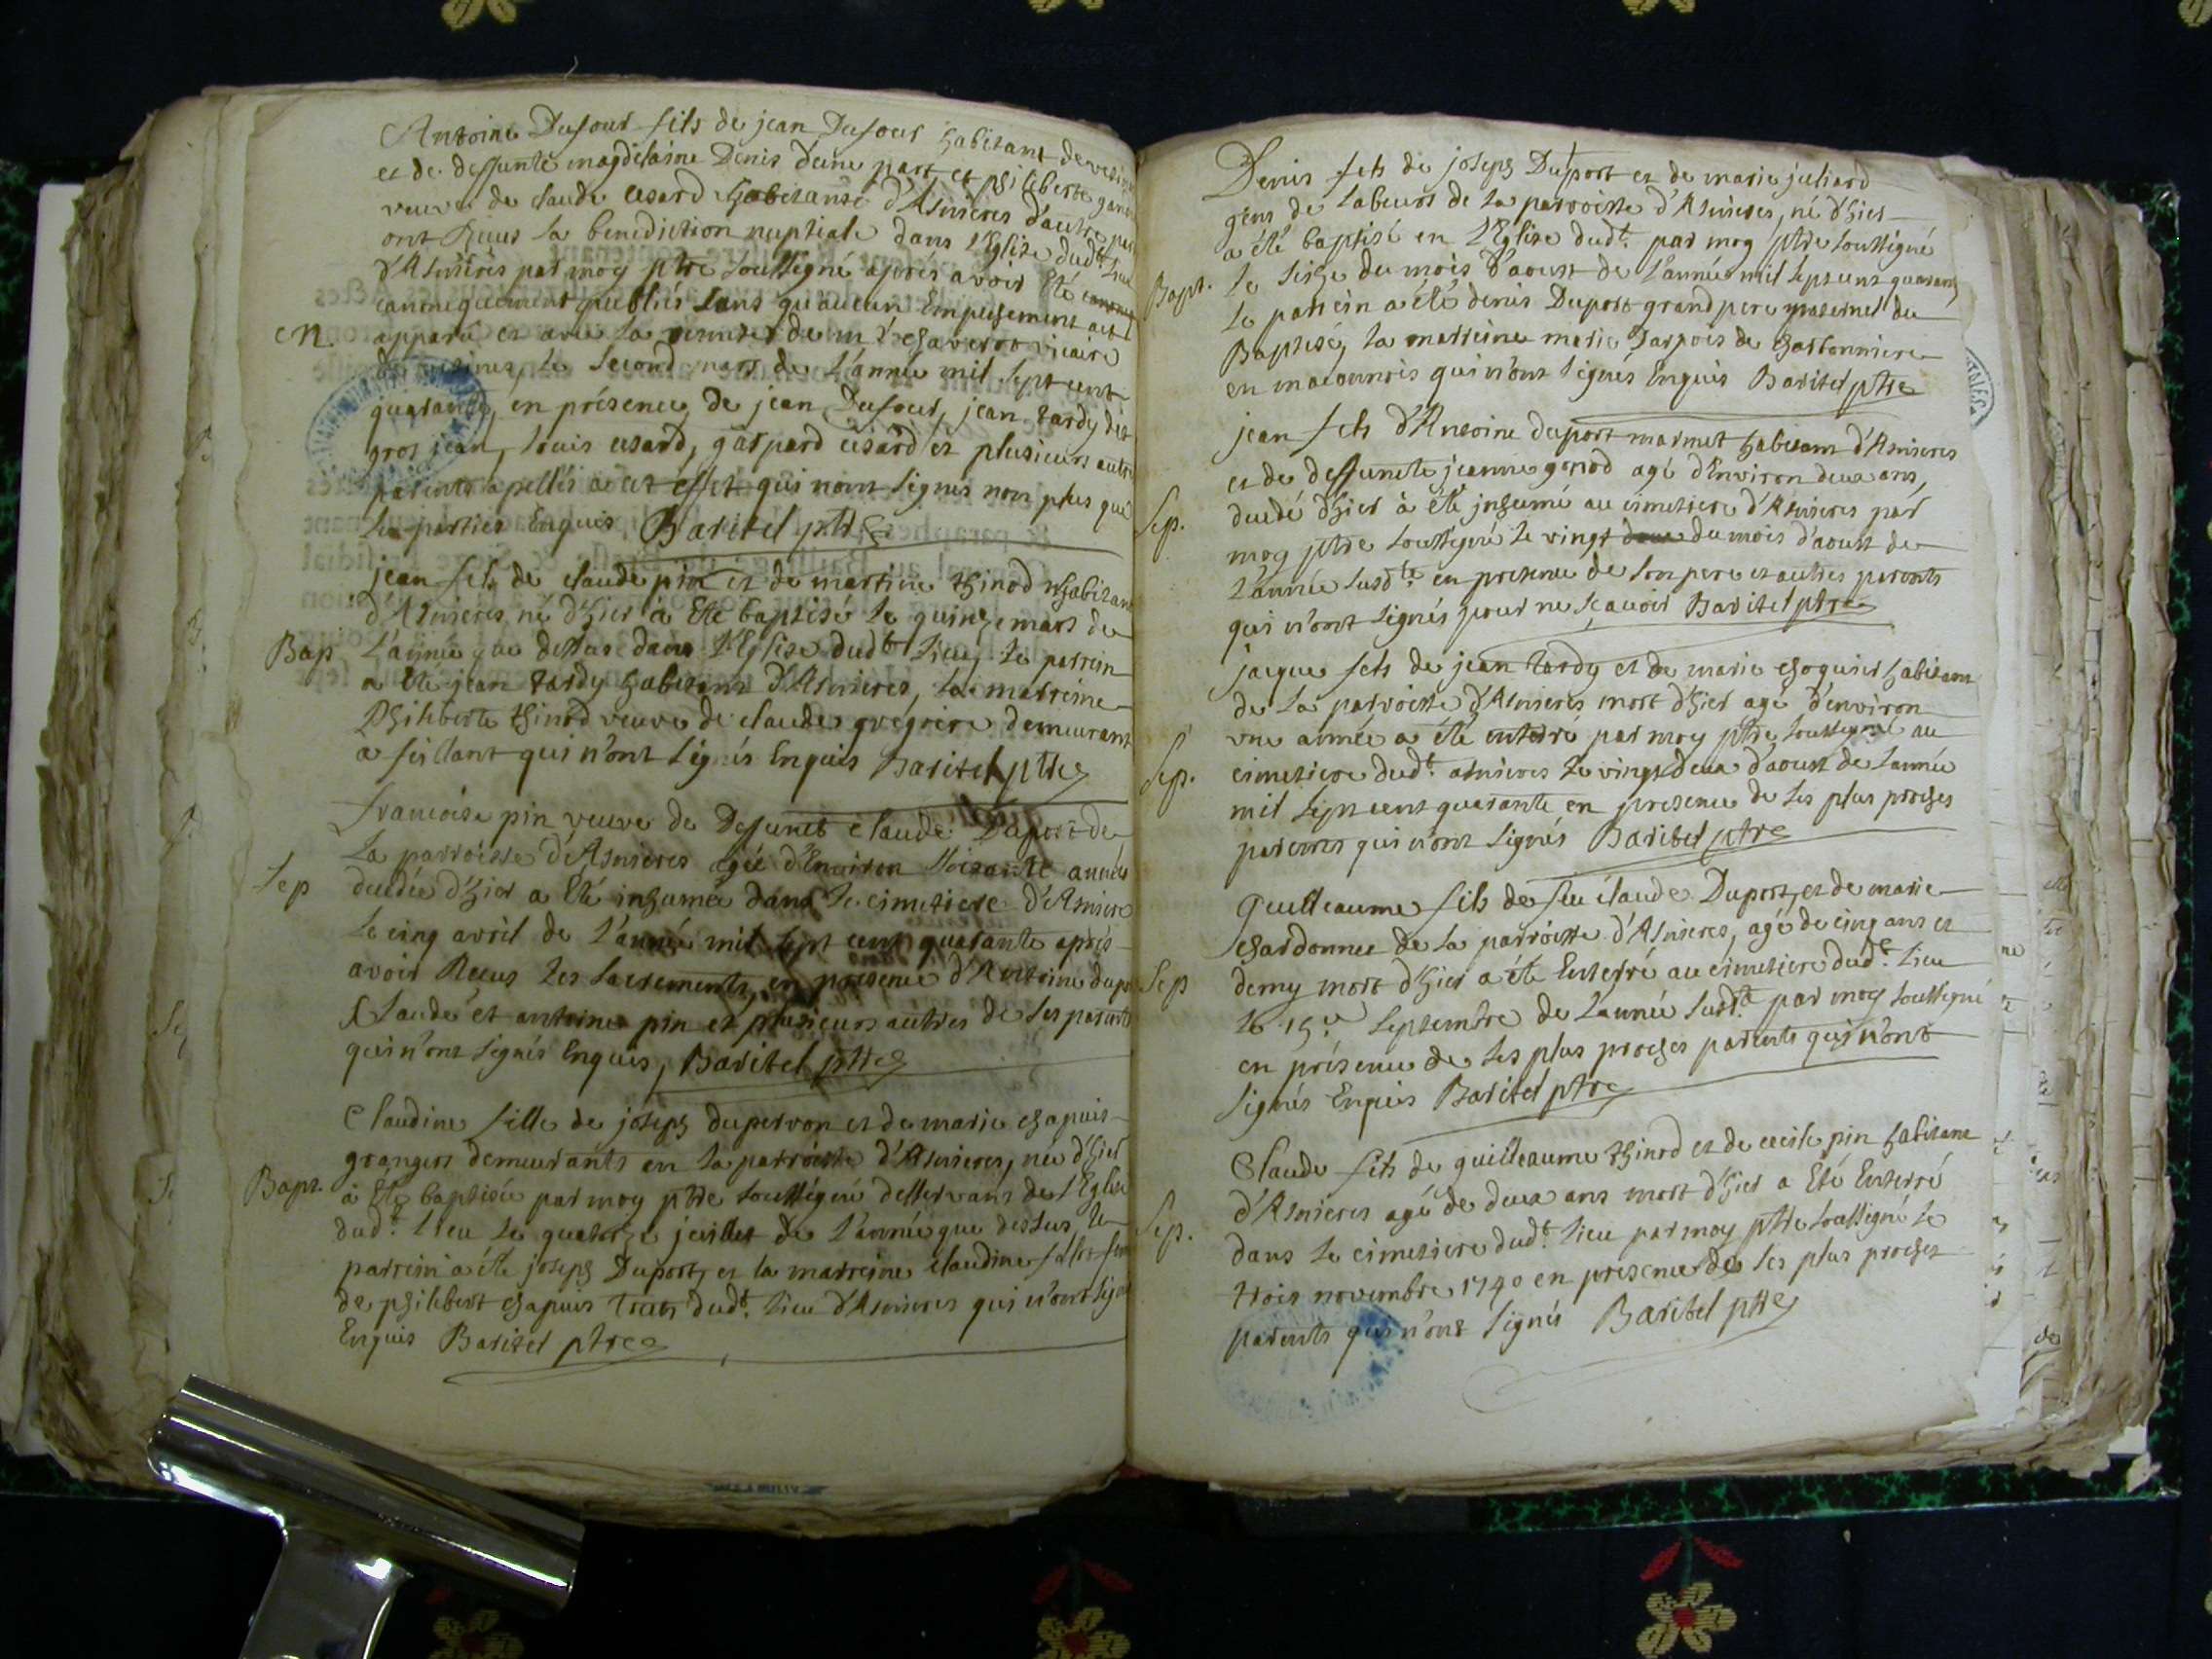 Antoine Dufour fils de jean Dufour habitant de
et de deffunte magdelaine Denis d'une part et philiberte
veuve de claude cesard habitante d'Asnieres d'autre
ont Reçus la benediction nuptiale dans l'Eglise dudt lieu
d'Asnieres par moy ptre soussigné aprés avoir Eté
canoniquement publiés sans qu'aucun Empeschement ait
M. apparu et avec la de mr vicaire
de le second mars de l'année mil sept cent
quarante, en présence de jean Dufour, jean tardy dit
gros jean, louis cesard, gaspard cesard et plusieurs autres
parents apellés a cet effet qui n'ont signés non plus que
les parties Enquis Baritel ptre
jean fils de claude pin et de martine thinod habitans
d'Asnieres né d'hier à Eté baptisé le quinze mars de
Bap l'année que dessus dans l'Eglise dudt lieu, le parrein
a Eté jean tardy habitant d'Asnieres, la marreine
Philiberte thinod veuve de claude gregoire demeurant
a feillant qui n'ont signés Enquis Baritel ptre
francoise pin veuve de Defunct claude Duport de
la parroisse d'Asnieres agée d'Environ soixante années
Sep decédée d'hier a Eté inhumée dans le cimetiere d'Asnieres
le cinq avril de l'année mil sept cent quarante aprés
avoir Recus les sacrements, en presence d'Antoine
Claude et antoine pin et plusieurs autres de ses parents
qui n'ont signés Enquis, Baritel ptre
Claudine fille de joseph dupervon et de marie chapuis
grangers demeurants en la parroisse d'Asnieres, née d'hier
Bapt. à Eté baptisée par moy ptre soussigné desservant de l'Eglise
dudt lieu le quatorze juillet de l'année que dessus, le
parrein a été joseph Duport, et la marreine claudine
de philibert chapuis tous dudt lieu d'Asnieres qui n'ont signé
Enquis Baritel ptre
Denis fils de joseph Duport et de marie juliard
gens de labeurs de la parroisse d'Asnieres, né d'hier
a été baptisé en l'Eglise dudt par moy ptre soussigné
Bapt. le seize du mois d'aoust de l'année mil sept cent quarante
le parrein a été denis Duport grand pere paternel du
Baptisé, la marreine marie de charbonniere
en maconnois qui n'ont signés Enquis Baritel ptre
jean fils d'Antoine duport marmet habitant d'Asnieres
et de deffuncte jeanne gonod agé d'Environ deux ans,
Sep. decédé d'hier à été inhumé au cimetiere d'Asnieres par
moy ptre soussigné le vingt du mois d'aoust de
l'année susdte en presence de son pere et autres parents
qui n'ont signés pour ne sçavoir Baritel ptre
jacque fils de jean tardy et de marie habitant
de la parroisse d'Asnieres mort d'hier agé d'environ
une année a été enterré par moy ptre soussigné au
Sep. cimetiere dudt asnieres le vingt deux d'aoust de l'année
mil sept cent quarante en presence de ses plus proches
parents qui n'ont signés Baritel ptre
Guilleaume fils de feu claude Duport, et de marie
chardonnet de la parroisse d'Asnieres, agé de cinq ans et
Sep demy mort d'hier a été Enterré au cimetiere dudt lieu
le 15e septembre de l'année susdte par moy soussigné
en présence de ses plus proches parents qui n'ont
signés Enquis Baritel ptre
Claude fils de guilleaume thinod et de cecile pin habitant
d'Asnieres agé de deux ans mort d'hier a Eté Enterré
Sep. dans le cimetiere dudt lieu par moy ptre soussigné le
trois novembre 1740 en presence de ses plus proches
parents qui n'ont signés Baritel ptre